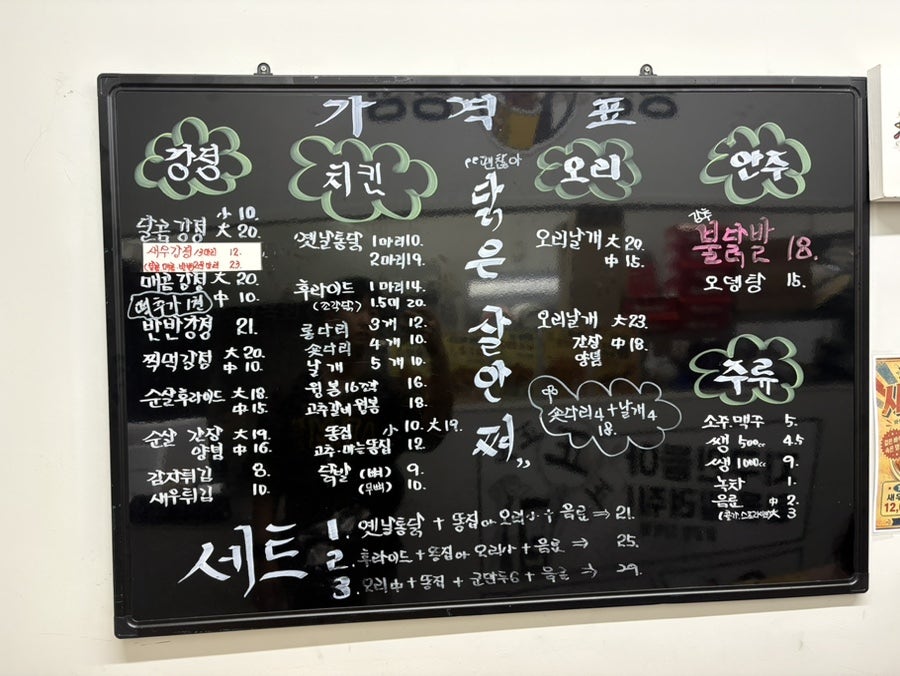 가격표
강정
달콤강정 小 10.
大 20.
새우강정 12.
23.
매콤강정 大 20.
떡추가 1천
中 10.
반반강정 21.
찍먹강정 大 20.
中 10.
순살후라이드 大 18.
中 15.
순살 간장 大 19.
양념 中 16.
감자튀김 8.
새우튀김 10.
치킨
옛날통닭 1마리 10.
2마리 19.
후라이드 1마리 14.
(조각닭) 1.5마 20.
롱다리 3개 12.
숏다리 4개 10.
날개 5개 10.
윙봉 16조각 16.
고추갈비 윙봉 18.
똥집 小 10. 大 19.
고추·마늘똥집 12
닭발 (뼈) 9.
(무뼈) 10.
“괜찮아
닭은
살안쪄„
오리
오리날개 大 20.
中 15.
오리날개 大 23.
간장 中 18.
양념
숏다리4+날개4
18.
안주
불닭발 18.
오뎅탕 15.
주류
소주·맥주 5.
생 500cc 4.5
생 1000cc 9.
녹차 1.
음료 中 2.
大 3
세트
1. 옛날통닭 + 똥집 or 오리小 + 음료 ⇒ 21.
2. 후라이드 + 똥집 or 오리小 + 음료 ⇒ 25.
3. 오리中 + 똥집 + 군만두6 + 음료 ⇒ 29.